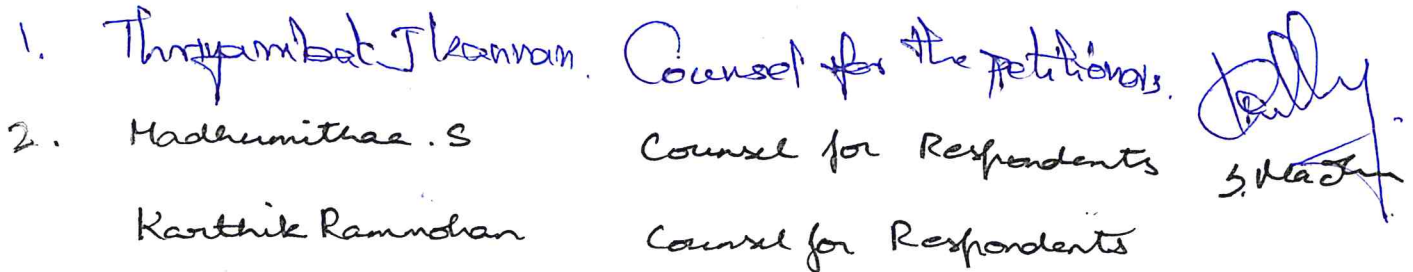 1. Thryambak J Kannan. Counsel for the petitioners.
2. Madhumithaa . S Counsel for Respondents S. Madhu
Karthik Rammohan Counsel for Respondents